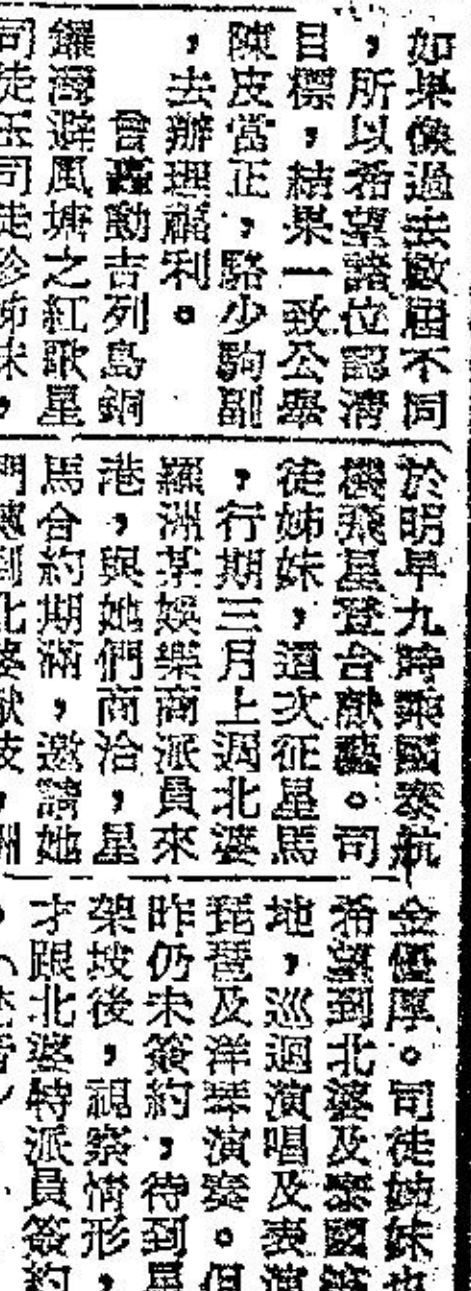 如果像過去數屆不同
，所以希望諸位認清
目標，結果一致公舉
陳皮當正，駱少駒副
，去辦理福利。
曾轟動吉列島銅
鑼灣避風塘之紅歌星
司徒玉司徒珍姊妹，
於明早九時乘國泰航
機飛星登台獻藝。司
徒姊妹，這次征星馬
，行期三月上週北婆
羅洲某娛樂商派員來
港，與她們商洽，星
馬合約期滿，邀請她
們到北婆獻技，
金優厚。司徒姊妹也
希望到北婆及泰國等
地，巡迴演唱及表演
琵琶及洋琴演奏。但
昨仍未簽約，待到星
架坡後，視察情形，
才跟北婆特派員簽約